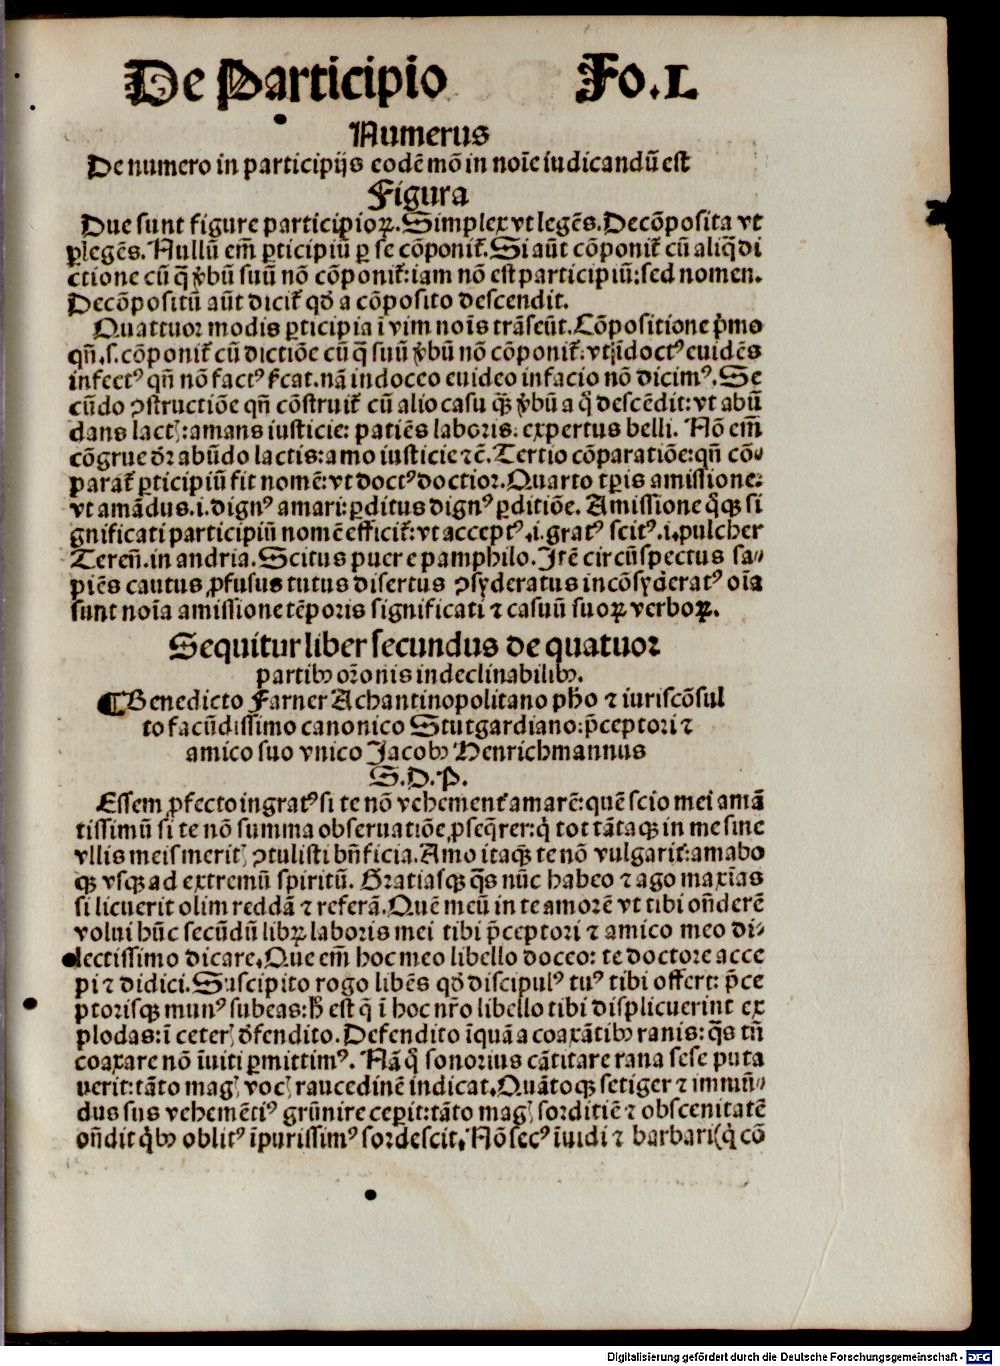 De Participio Fo.L
Numerus
De numero in participijs eodē mō in noīe iudicandū est
Figura
Due sunt figure participioꝝ. Simplex vt legēs. Decōposita vt
ꝑlegēs. Nullū em̄ ꝑticipiū ꝑ se cōponit᷑. Si aūt cōponit᷑ cū aliq̄ di
ctione cū q̄ v̓bū suū nō cōponit᷑: iam nō est participiū: sed nomen.
Decōpositū aūt dicit᷑ qđ a cōposito descendit.
Quattuor modis ꝑticipia ī vim noīs trāseūt. Cōpositione p̓mo
qn̄ .s. cōponit᷑ cū dictiōe cū q̄ suū v̓bū nō cōponit᷑. vt īdoctꝰ euidēs
infectꝰ qn̄ nō factꝰ ſ̓cat. nā indoceo euideo infacio nō dicimꝰ. Se
cūdo ꝯstructiōe qn̄ cōstruit᷑ cū alio casu q̄ꝫ v̓bū a q̊ descēdit: vt abū
dans lactꝭ: amans iusticie: patiēs laboris: expertus belli. Nō em̄
cōgrue dr̄ abūdo lactis: amo iusticie ⁊c̄. Tertio cōparatiōe: qn̄ cō⸗
parat᷑ ꝑticipiū fit nomē: vt doctꝰ doctior. Quarto tꝑis amissione:
vt amādus .i. dignꝰ amari: ꝑditus dignꝰ ꝑditiōe. Amissione q̊ꝫ si
gnificati participiū nomē efficit᷑: vt acceptꝰ .i. gratꝰ scitꝰ .i. pulcher
Teren̄. in andria. Scitus puer e pamphilo. Itē circūspectus sa⸗
piēs cautus ꝓfusus tutus disertus ꝯsyderatus incōsyd̓eratꝰ oīa
sunt noīa amissione tēporis significati ⁊ casuū suoꝝ verboꝝ.
Sequitur liber secundus de quatuor
partibꝰ or̄onis indeclinabilibꝰ.
¶ Benedicto Farner Achantinopolitano pho ⁊ iuriscōsul
to facūdissimo canonico Stutgardiano: p̄ceptori ⁊
amico suo vnico Jacobꝰ Henrichmannus
S.D.P.
Essem ꝓfecto ingratꝰ si te nō vehement᷑ amarē: quē scio mei amā
tissimū si te nō summa obseruatiōe ꝓseq̄rer: q̇ tot tātaqꝫ in me sine
vllis meis meritꝭ ꝯtulisti bn̄ficia. Amo itaqꝫ te nō vulgarit᷑: amabo
qꝫ vsqꝫ ad extremū spiritū. Gratiasqꝫ q̄s nūc habeo ⁊ ago maxīas
si licuerit olim reddā ⁊ referā. Quē meū in te amorē vt tibi on̄derē
volui hūc secūdū libꝝ laboris mei tibi p̄ceptori ⁊ amico meo di⸗
lectissimo dicare. Que em̄ hoc meo libello doceo: te doctore acce
pi ⁊ didici. Suscipito rogo libēs qđ discipulꝰ tuꝰ tibi offert: p̄ce
ptorisqꝫ munꝰ subeas: ħ est q̄ ī hoc nr̄o libello tibi displicuerint ex
plodas: ī ceterꝭ d̓fendito. Defendito īquā a coaxātibꝰ ranis: q̄s tn̄
coaxare nō īuiti ꝑmittimꝰ. Nā q̊ sonorius cātitare rana sese puta
uerit: tāto magꝭ vocꝭ raucedinē indicat. Quātoqꝫ setiger ⁊ immū⸗
dus sus vehemētiꝰ grūnire ceperit: tāto magꝭ sorditiē ⁊ obscenitatē
on̄dit q̇bꝰ oblitꝰ īpurissimꝰ sordescit. Nō secꝰ īuidi ⁊ barbari (q̇ cō
Digitalisierung gefördert durch die Deutsche Forschungsgemeinschaft - DFG